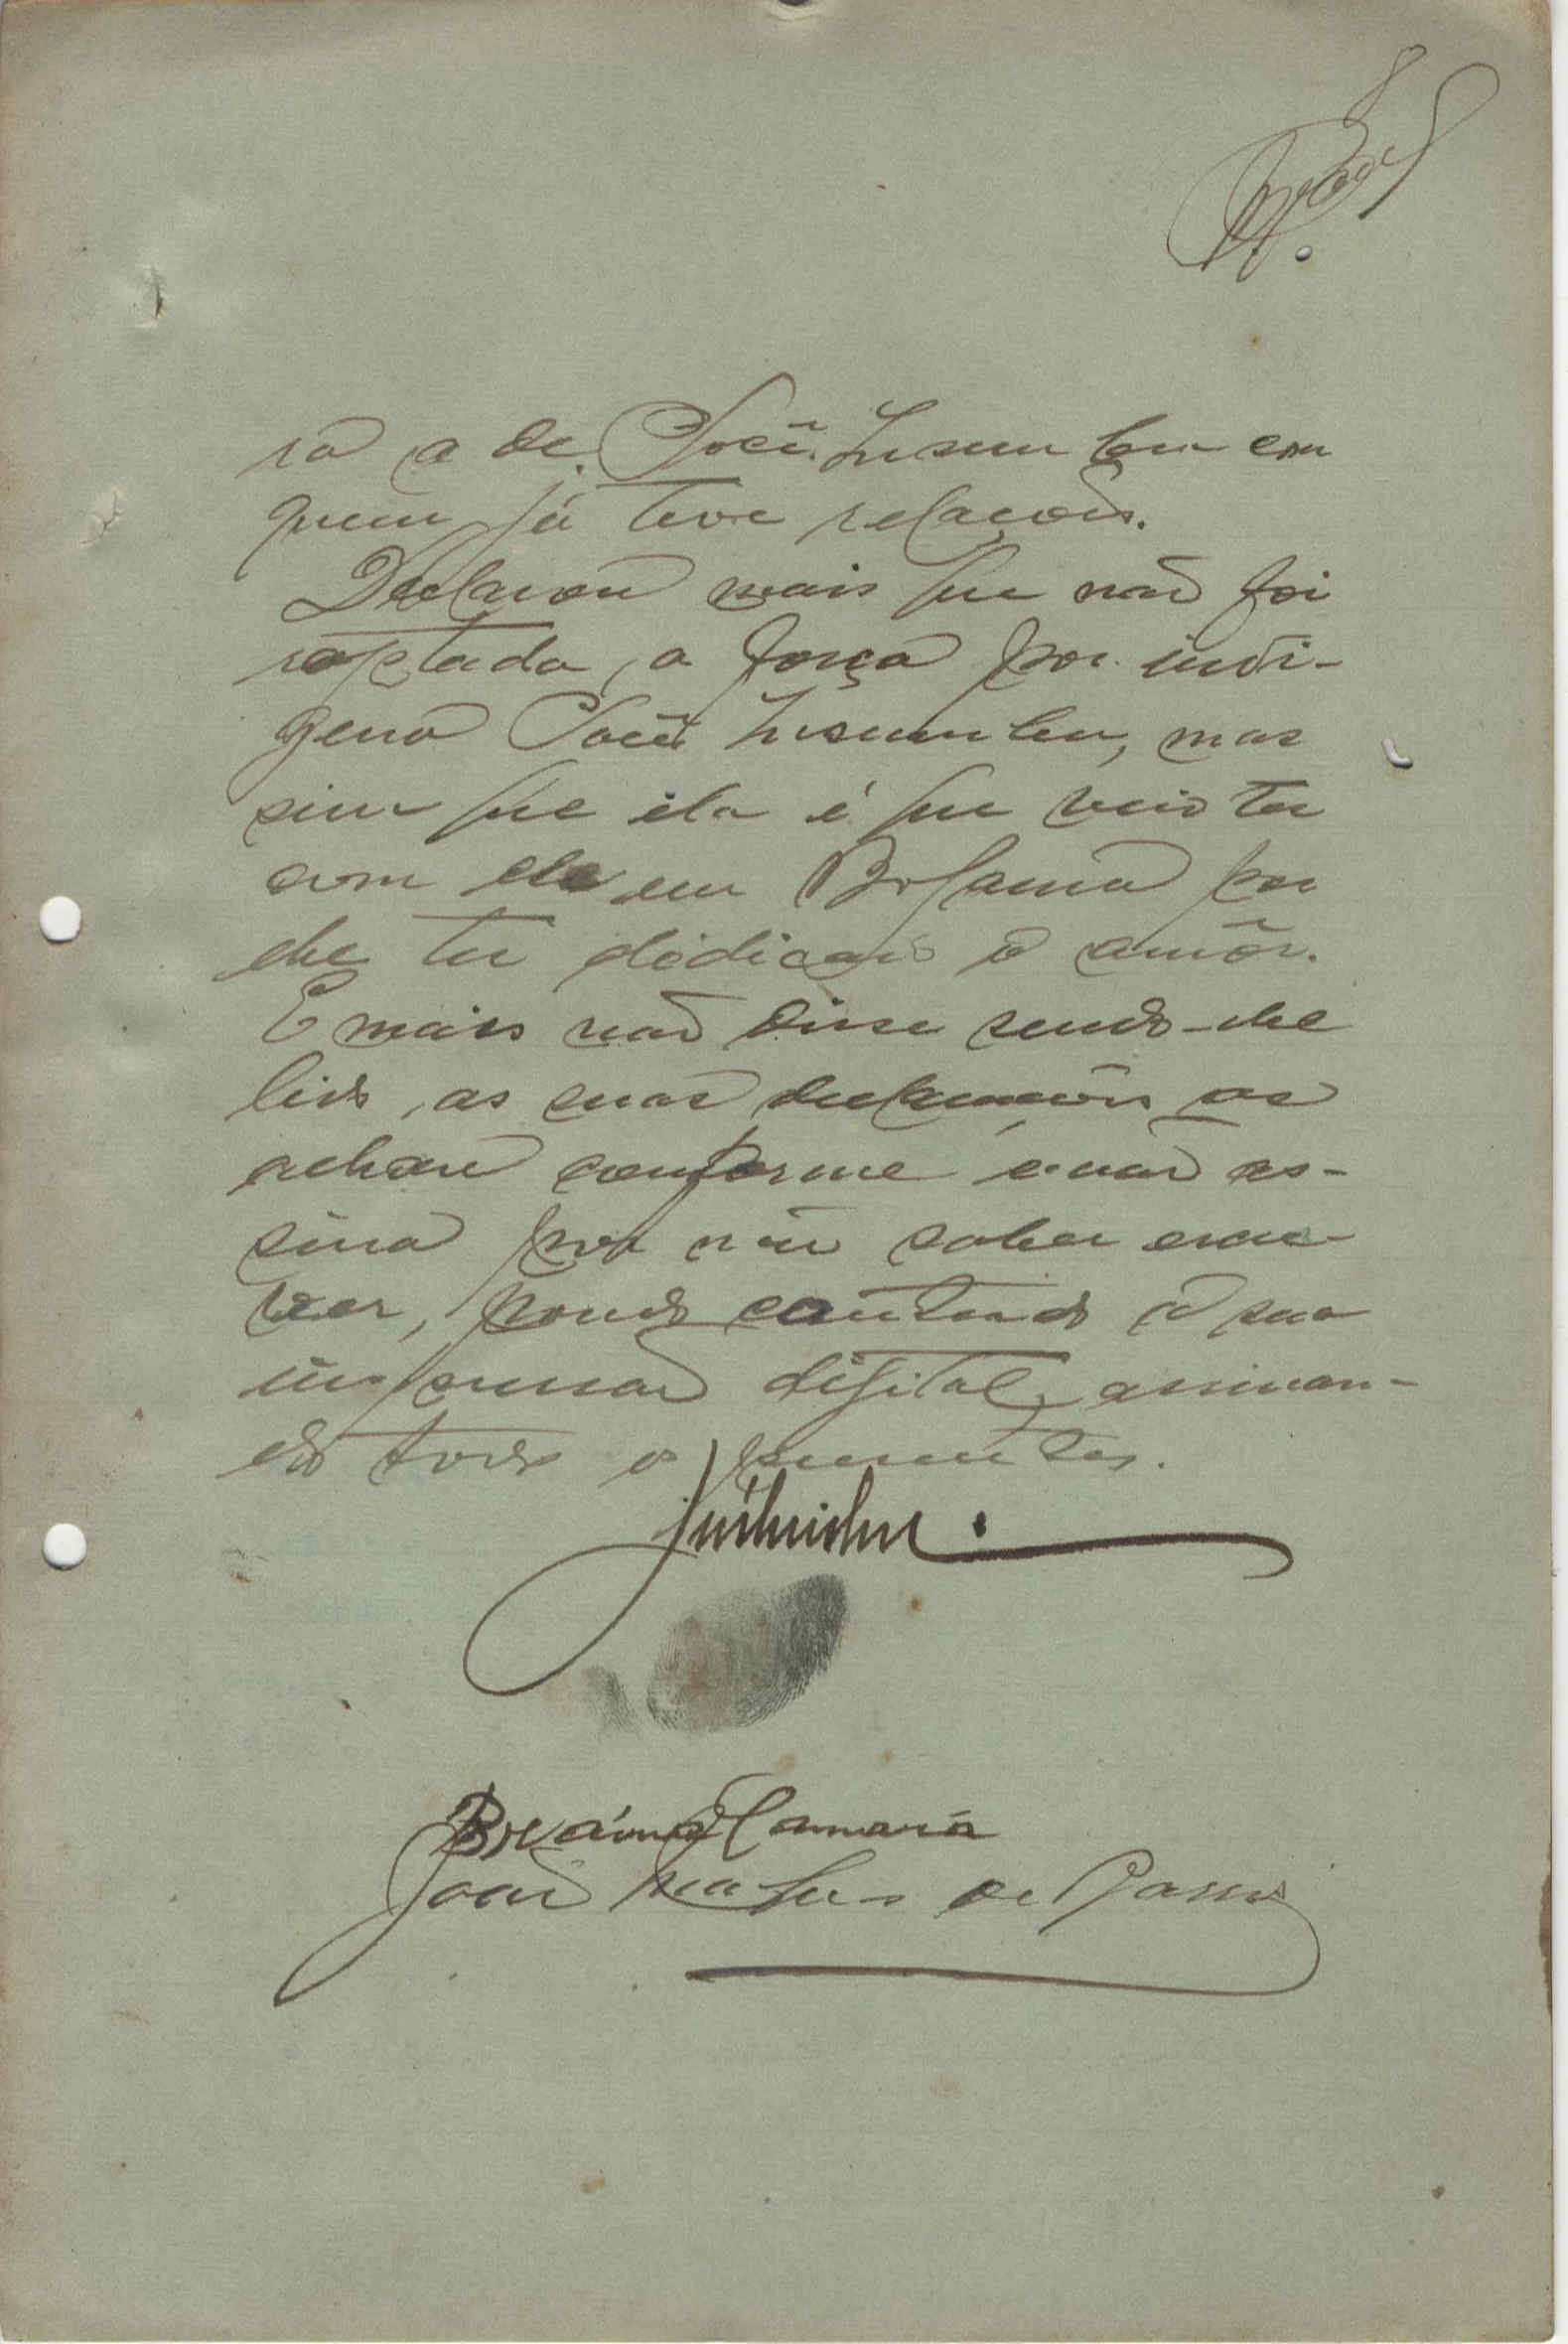 ra a de com
quem já teve relações.
Declarou mais que não foi
raptada, a força por indi-
gena mas
sim que ela é que veio ter
com ele em Bolama por
lhe ter dedicado o amôr.
E mais não disse sendo-lhe
lido, as suas declarações as
achou conforme e não as-
sina por não saber escre-
ver, pondo contudo a sua
impressão digital, assinan-
do todos os presentes.
Braima Camará
João de Passos